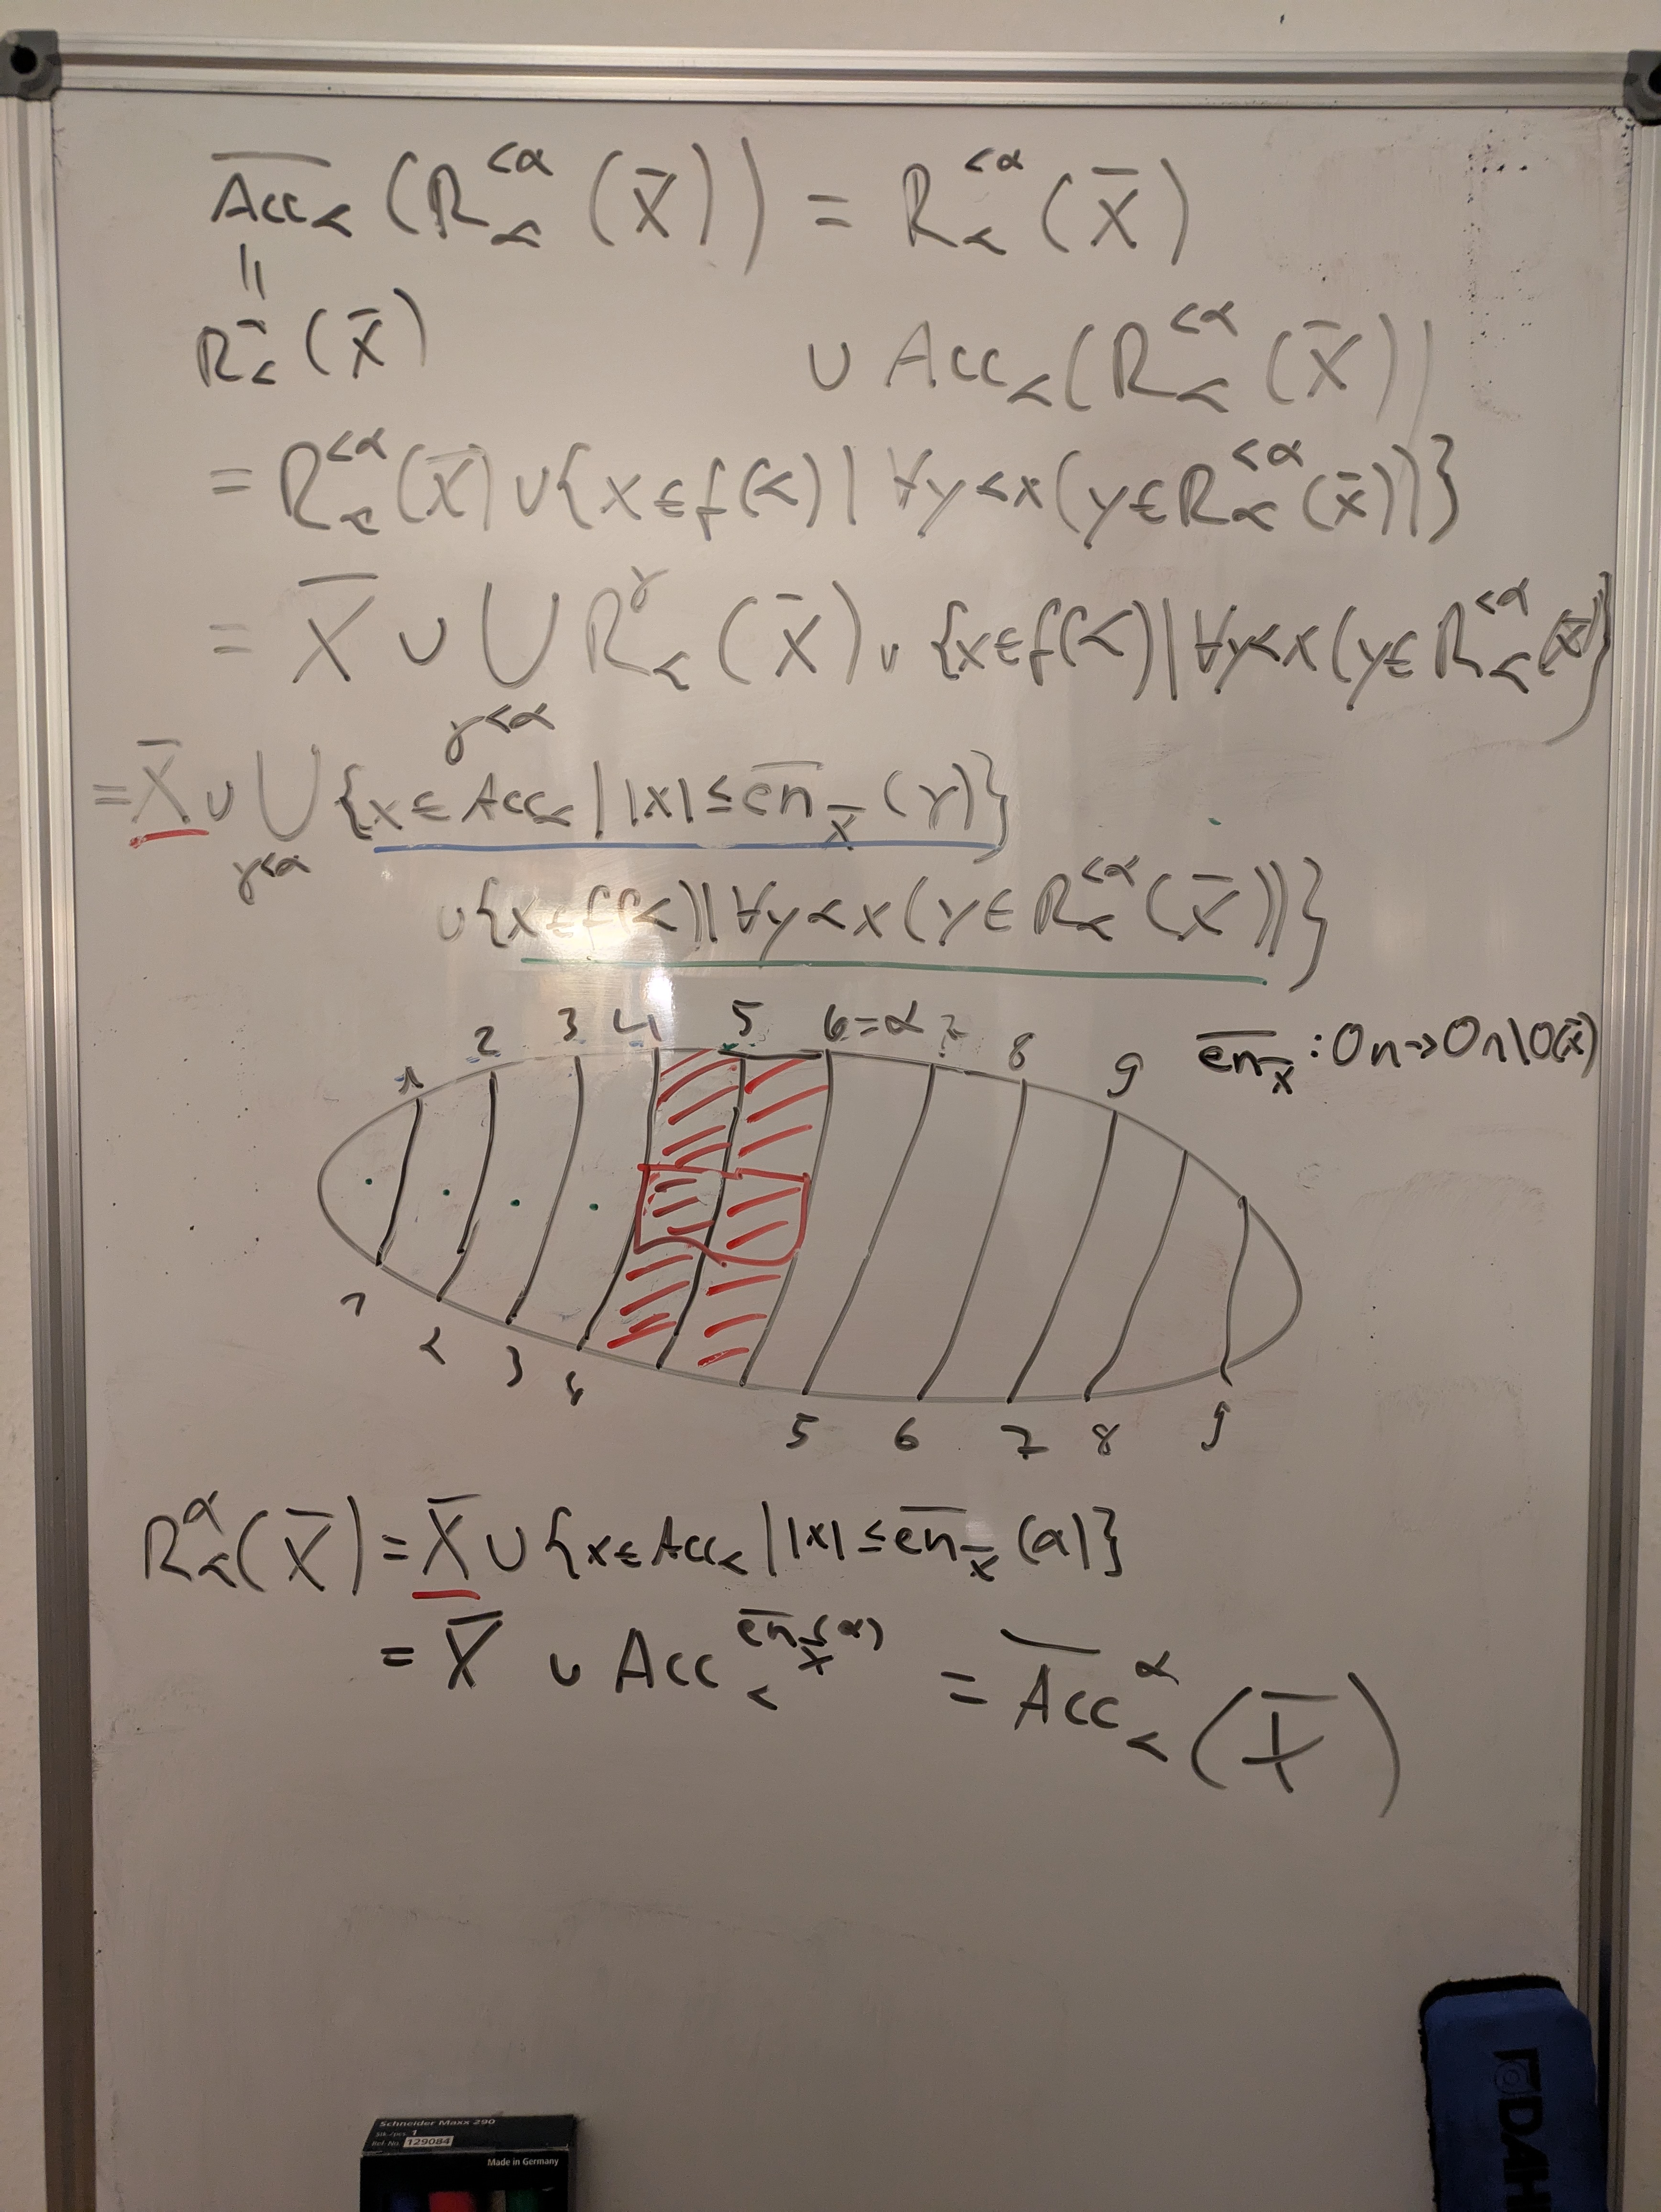 A̅c̅c̅≺ (R≺^<α (X̄)) = R≺^<α (X̄)
||
R≺^α (X̄)
∪ Acc≺(R≺^<α (X̄))
= R≺^<α (X̄) ∪ {x ∈ f(≺) | ∀y≺x (y ∈ R≺^<α (X̄))}
= X̄ ∪ ⋃ R≺^γ (X̄) ∪ {x ∈ f(≺) | ∀y≺x (y ∈ R≺^<α (X̄)}
γ<α
= X̄ ∪ ⋃ {x ∈ Acc≺ | |x| ≤ e̅n̅_X̄ (γ)}
γ<α
∪ {x ∈ f(≺) | ∀y≺x (y ∈ R≺^<α (X̄))}
1 2 3 4 5 6=α 7 8 9
e̅n̅_X̄ : On → On\O(X̄)
1 2 3 4 5 6 7 8 9
R≺^α (X̄) = X̄ ∪ {x ∈ Acc≺ | |x| ≤ e̅n̅_X̄ (α)}
= X̄ ∪ Acc≺^e̅n̅_X̄(α) = A̅c̅c̅≺^α (X̄)
Schneider Maxx 290
Stk./pcs. 1
Ref.-No. 129084
Made in Germany
DAH